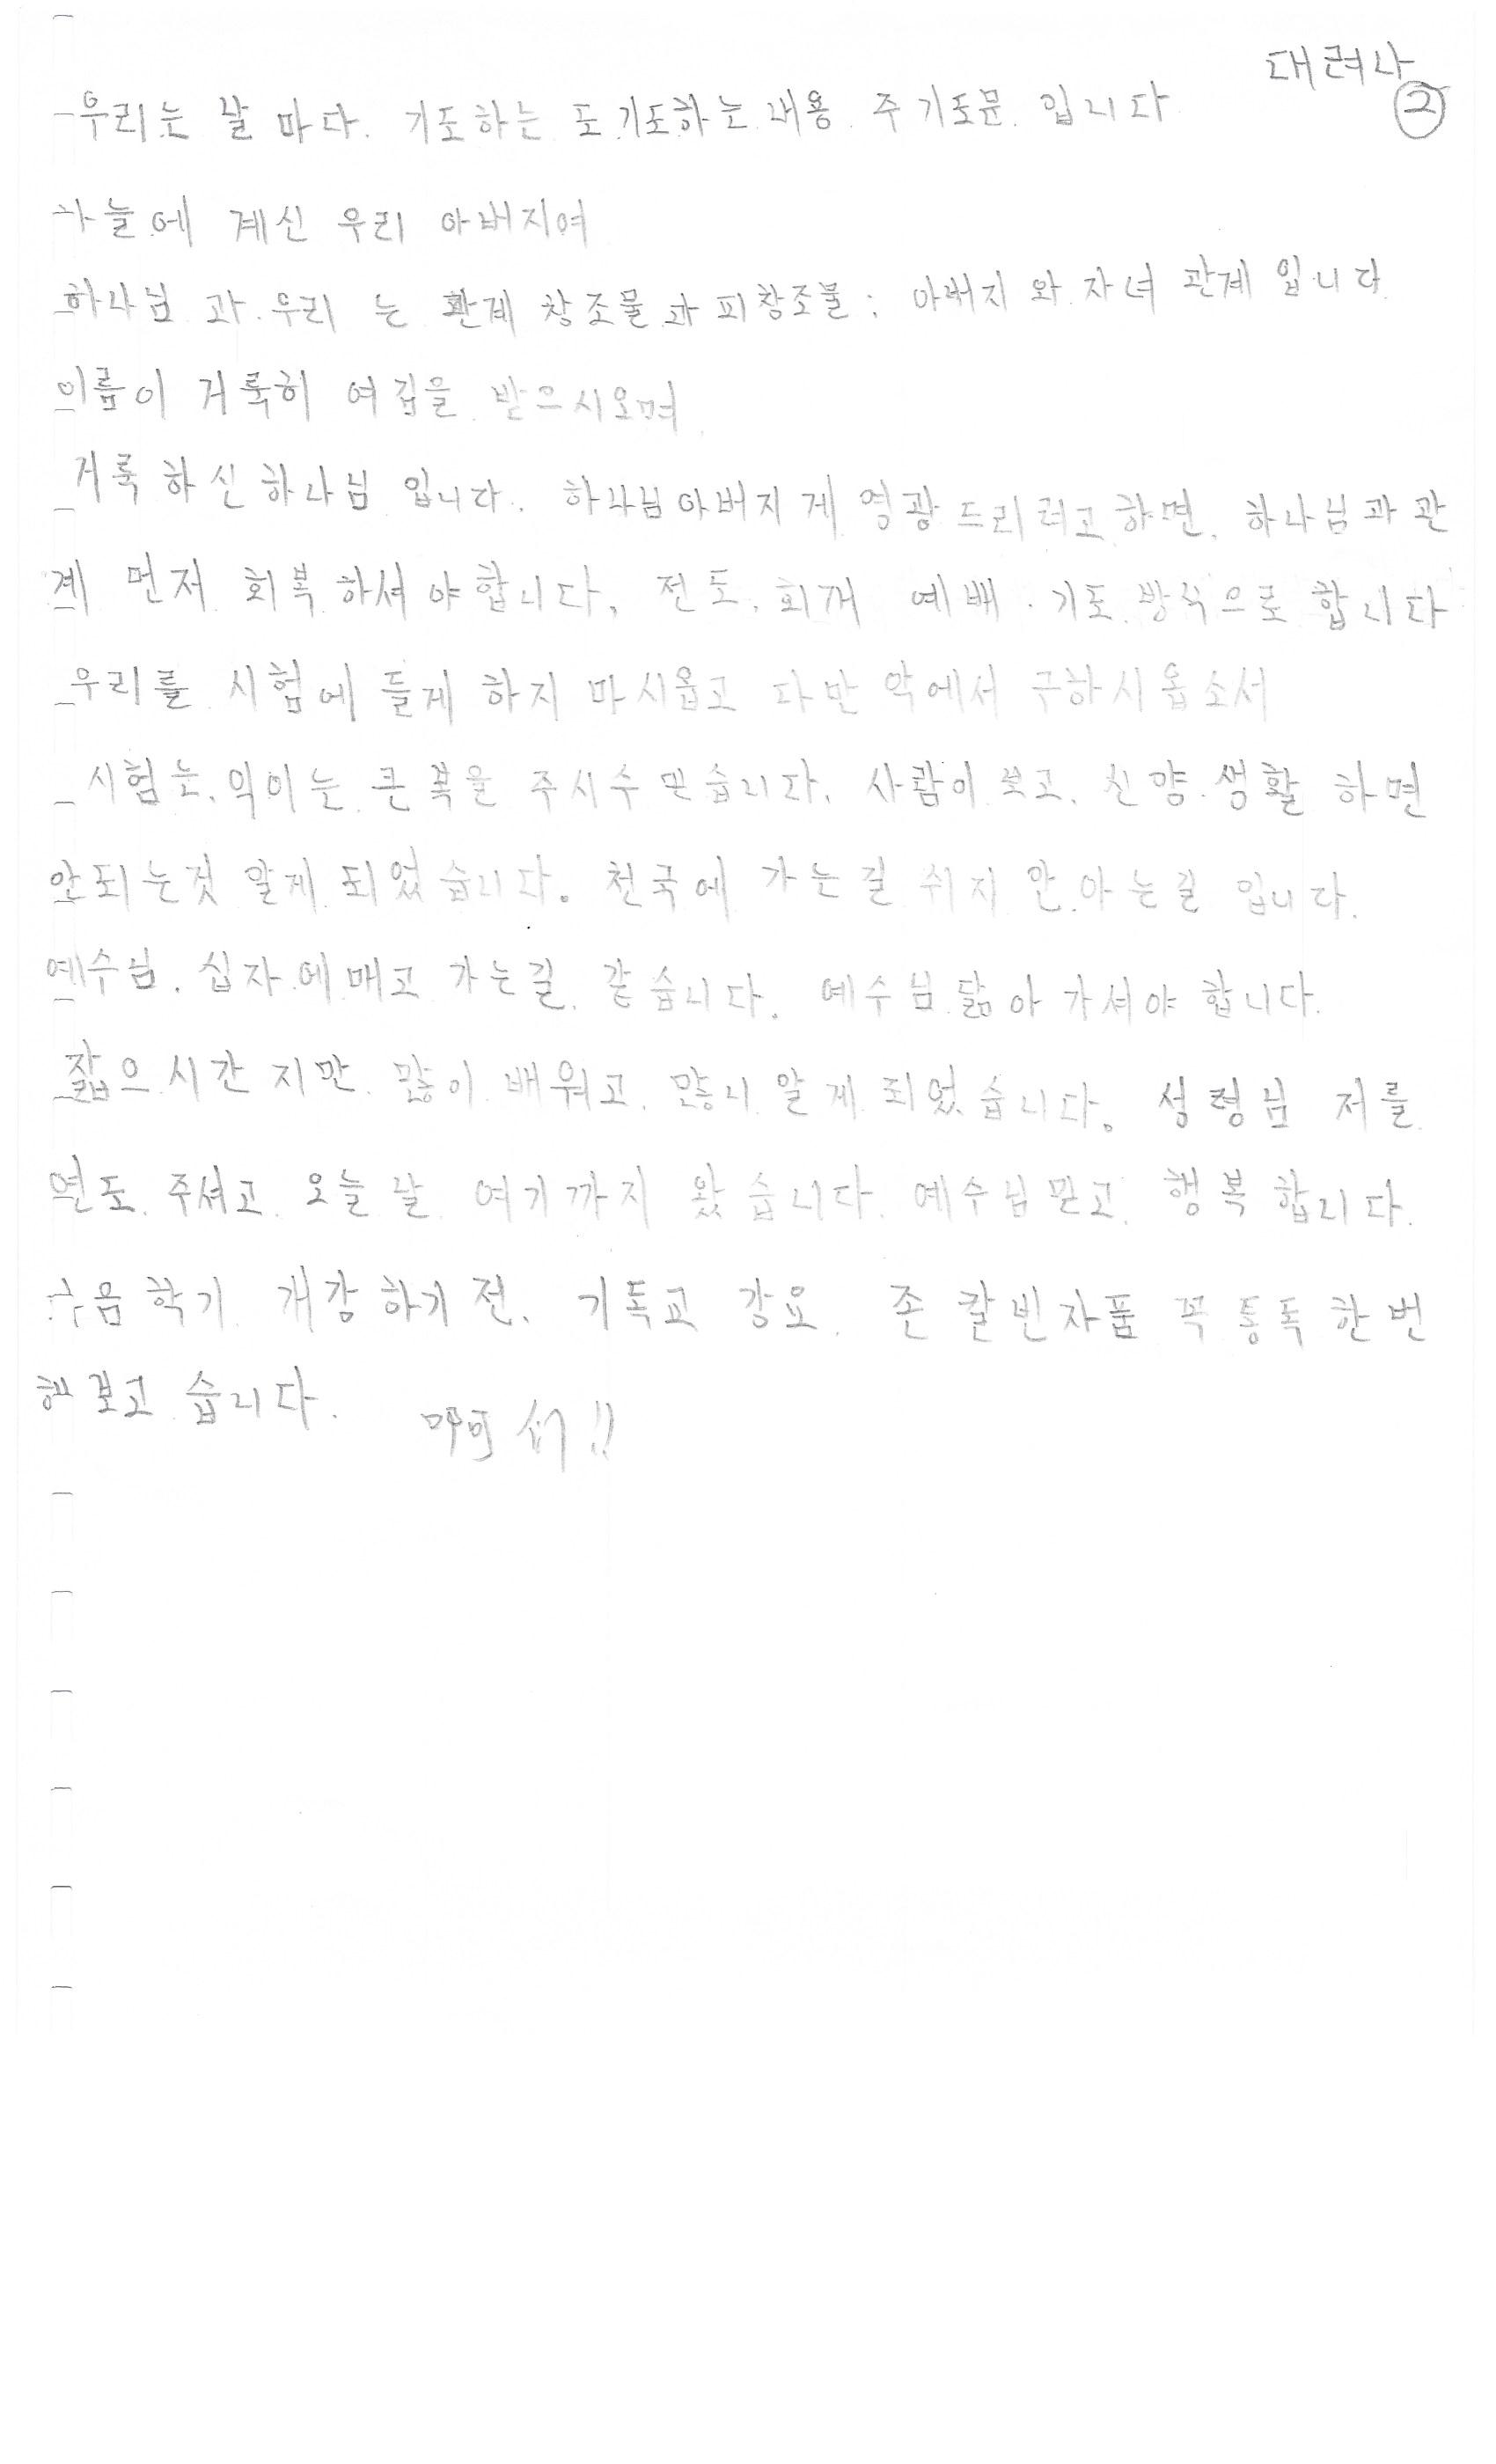 대려나
②
우리는 날 마다. 기도하는 도 기도하는 내용. 주 기도문. 입니다
하늘에 계신 우리 아버지여
하나님 과 우리 는 관계 창조물과 피창조물: 아버지 와 자녀 관계 입니다.
이름이 거룩히 여김을 받으시오며
거룩 하신 하나님 입니다. 하나님아버지 게 영광 드리려고 하면. 하나님과 관
계 먼저 회복 하셔야합니다. 전도. 회개 예배. 기도 방식으로 합니다
우리를 시험에 들게 하지 마시옵고 다만 악에서 구하시옵소서
시험는. 익이는 큰 복을 주시수 믿습니다. 사람이 보고. 신양 생활 하면
안되는것 알게 되었습니다. 천국에 가는길 쉬지 안.아는길 입니다.
예수님. 십자에 매고 가는길. 같습니다. 예수님 닮아 가셔야 합니다.
잛으 시간 지만. 많이 배워고. 많니 알게 되었습니다. 성령님 저를
연도. 주셔고. 오늘 날 여기까지 왔습니다. 예수님믿고. 행복합니다.
학기 개강하기 전. 기독교 강요. 존 칼빈자품 꼭 통독 한번
해보고 습니다.